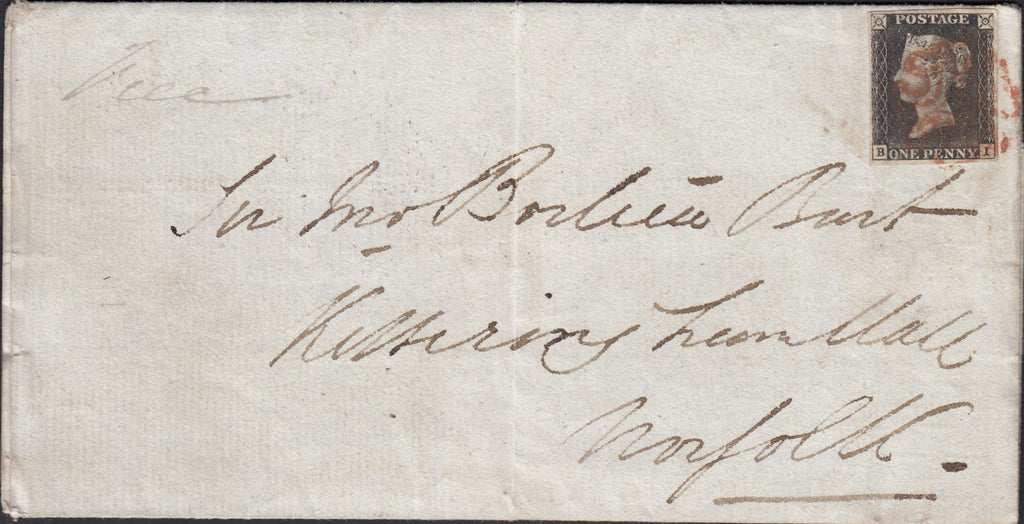 POSTAGE
B ONE PENNY I
Free
Sir Jno Boileau Bart
Kettering ham Hall
Norfolk